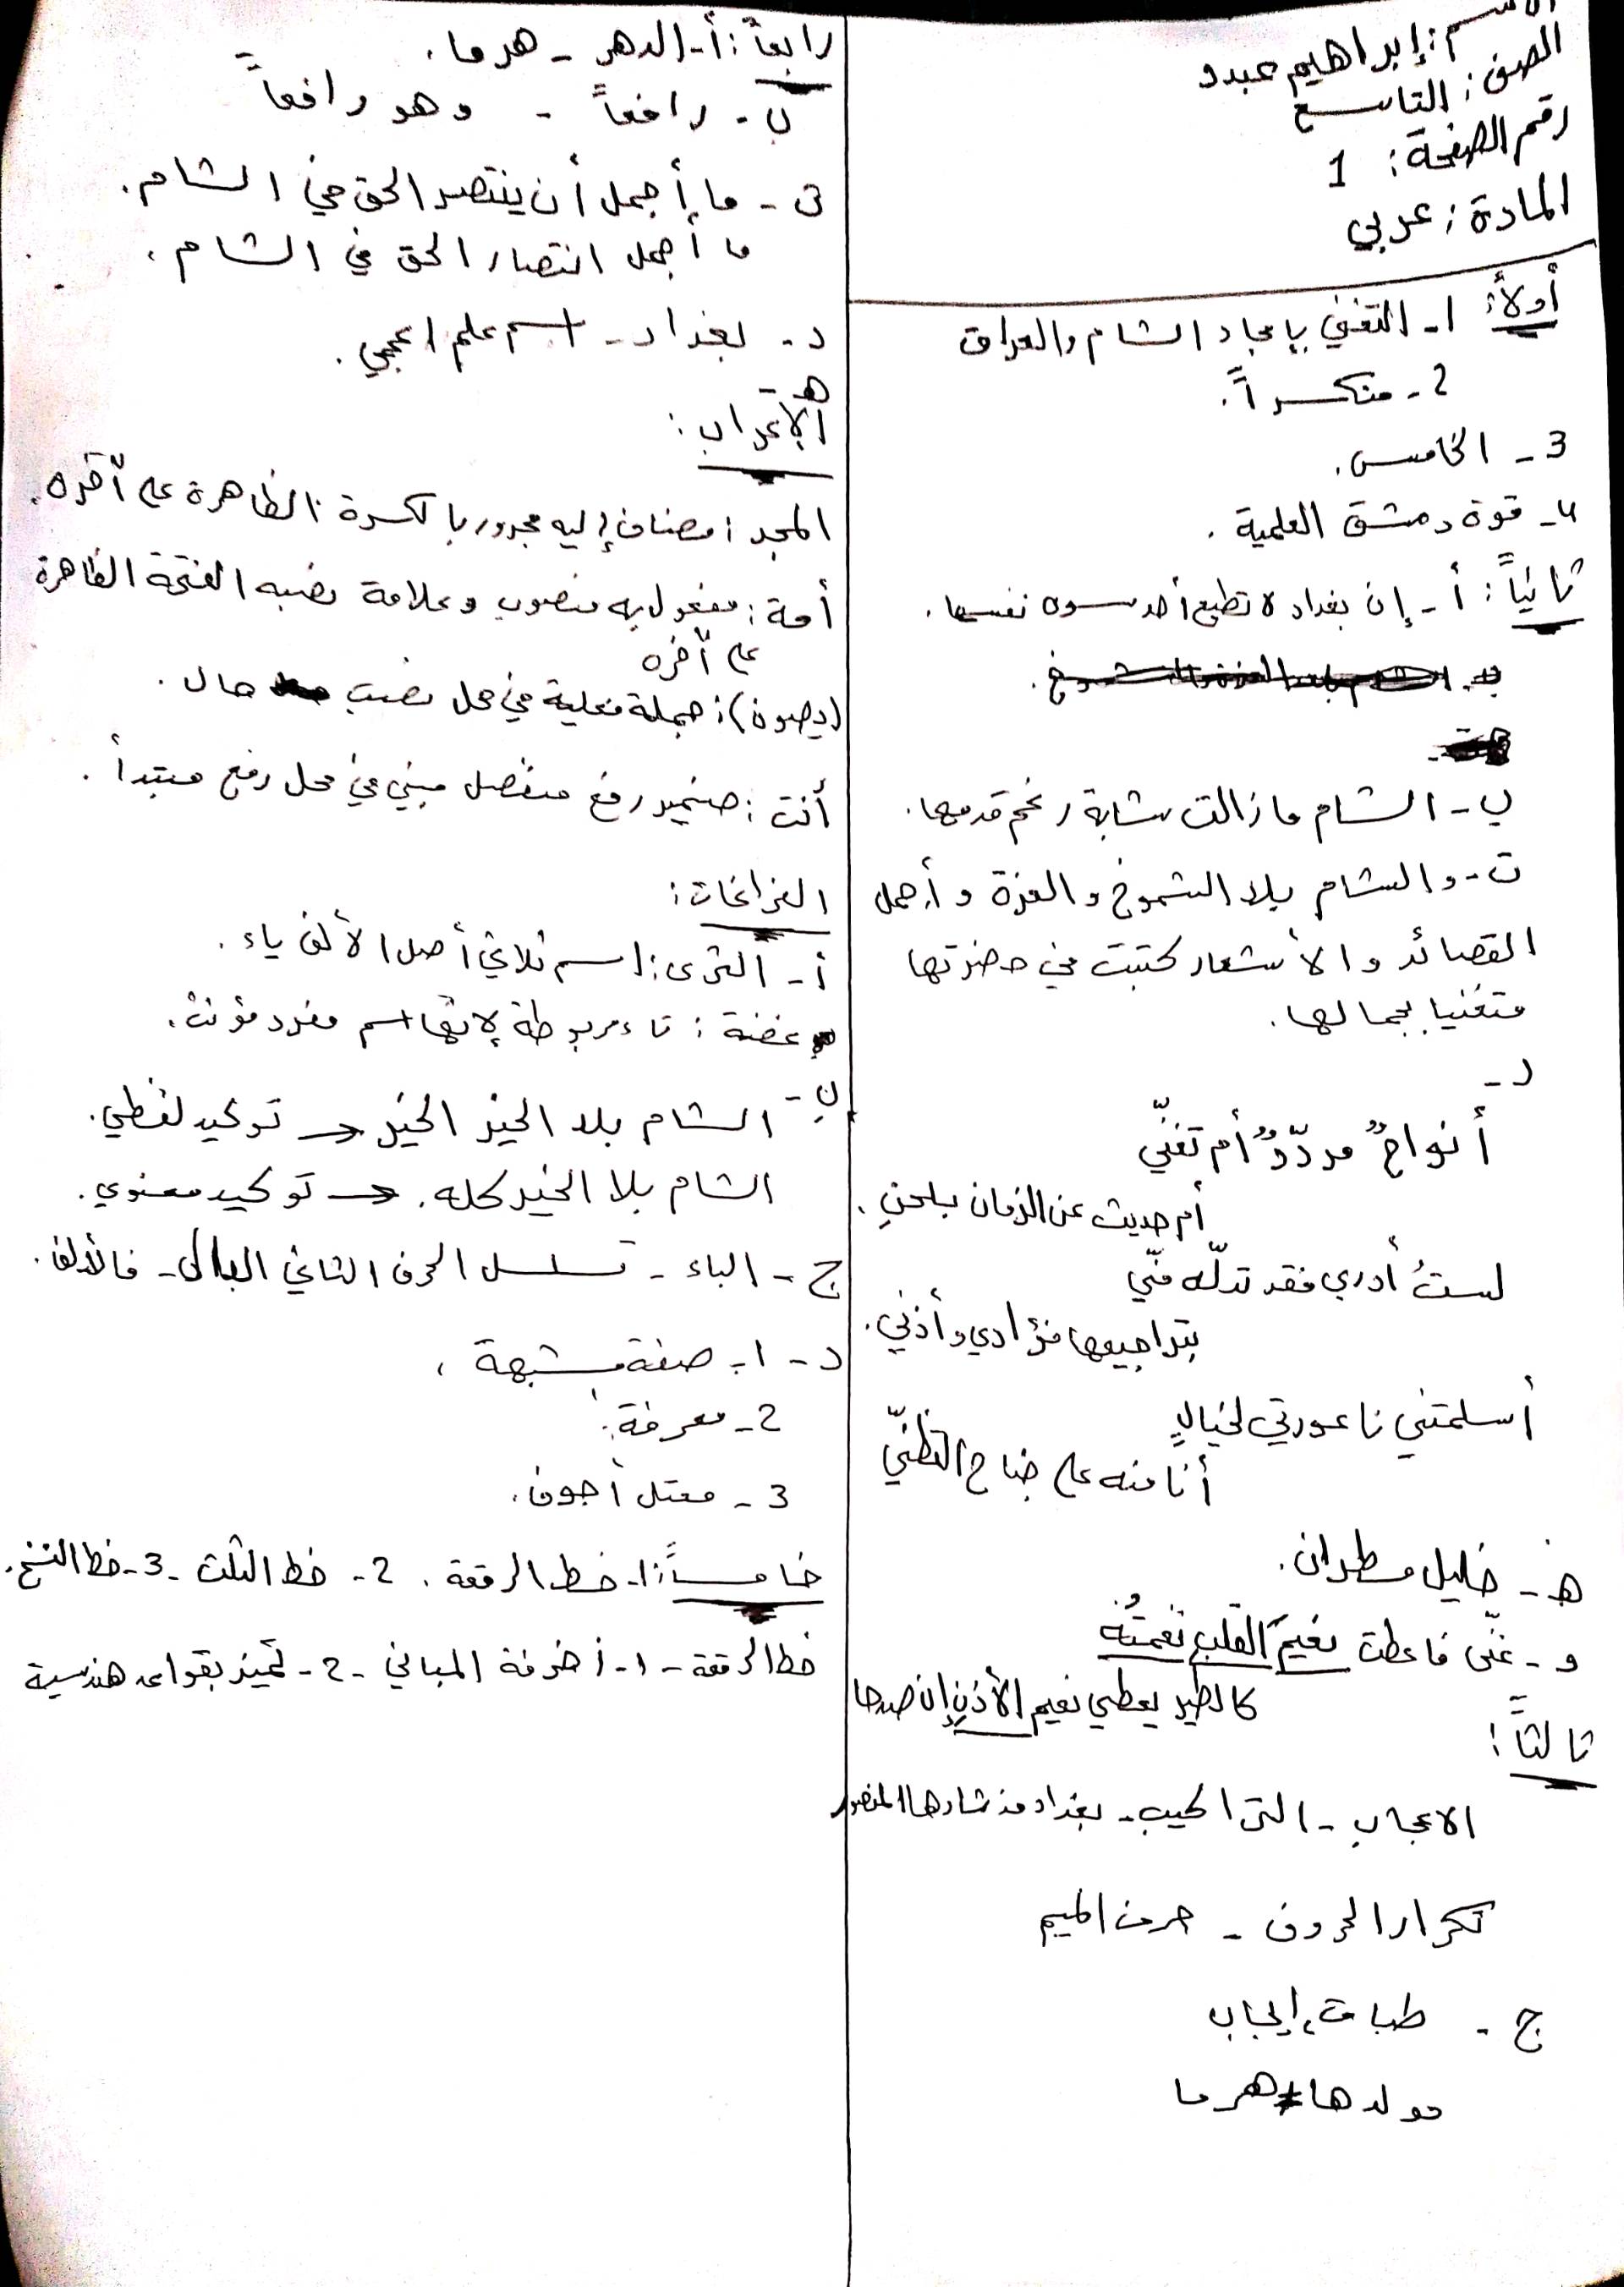 الاسم: إبراهيم عبدو
الصف: التاسع
رقم الصفحة: 1
المادة: عربي
أولاً: 1- التغني بإمجاد الشام والعراق
2- منكسراً.
3- الخامس.
4- قوة دمشق العلمية.
ثانياً: أ- إن بغداد لا تطيع أحد سوى نفسها.
ب- الشام ما زالت شابة رغم قدمها.
ت- والشام بلد الشموخ والعزة وأجمل
القصائد والأشعار كتبت في حضرتها
متغنيا بجمالها.
د-
أنواحٌ مردّدٌ أم تغنّي
أم حديث عن الزمان بلحنِ.
لستُ أدري فقد تدلّه منّي
بتراجيعها فؤادي وأذني.
أسلمتني ناعورتي لخيالٍ
أنا منه على جناح التظنّي
هـ- خليل مطران.
و- غنّى فاعطت نعيمَ القلبِ نغمتُه
كالطير يعطي نعيم الأذنِ إن صدحا
ثالثاً:
الاعجاب - التراكيب - بغداد مذ شادها المنصور
تكرار الحروف - حرف الميم
ج- طباق إيجاب
مولدها ≠ هرما
رابعاً: أ- الدهر - هرما.
ب- رافعاً - وهو رافعاً
ت- ما أجمل أن ينتصر الحق في الشام.
ما أجمل انتصار الحق في الشام.
د- بغداد - اسم علم اعجمي.
هـ-
الإعراب:
المجد: مضاف إليه مجرور بالكسرة الظاهرة على آخره.
أمة: مفعول به منصوب وعلامة نصبه الفتحة الظاهرة
على آخره
(يصون): جملة فعلية في محل نصب حال.
أنت: ضمير رفع منفصل مبني في محل رفع مبتدأ.
الفراغات:
أ- الثرى: اسم ثلاثي أصل الألف ياء.
غضة: تاء مربوطة لإنها اسم مفرد مؤنث.
ب- الشام بلد الخير الخير → توكيد لفظي.
الشام بلد الخير كله. → توكيد معنوي.
ج- الباء - تسلسل الحرف الثاني - فالألف.
د- 1- صفة مشبهة.
2- معرفة.
3- معتل أجوف.
خامساً: 1- خط الرقعة. 2- خط الثلث - 3- خط النسخ.
خط الرقعة - 1- زخرفة المباني - 2- تميز بقواعد هندسية